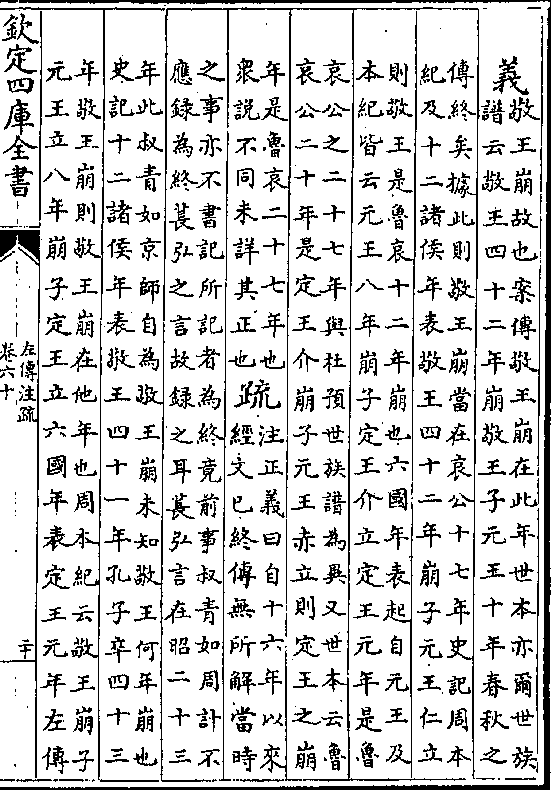 義
敬王崩故也案傳敬王崩在此年世本亦爾世族
譜云敬王四十二年崩敬王子元王十年春秋之
傳終矣據此則敬王崩當在哀公十七年史記周本
紀及十二諸侯年表敬王四十二年崩子元王仁立
則敬王是魯哀十二年崩也六國年表起自元王及
本紀皆云元王八年崩子定王介立定王元年是魯
哀公之二十七年與杜預世族譜為異又世本云魯
哀公二十年是定王介崩子元王赤立則定王之崩
年是魯哀二十七年也
衆說不同未詳其正也
疏
注正義曰自十六年以來
經文已終傳無所解當時
之事亦不書記所記者為終竟前事叔青如周計不
應録為終萇弘之言故録之耳萇弘言在昭二十三
年此叔青如京師自為敬王崩未知敬王何年崩也
史記十二諸侯年表敬王四十一年孔子卒四十三
年敬王崩則敬王崩在他年也周本紀云敬王崩子
元王立八年崩子定王立六國年表定王元年左傳
欽定四庫全書
左傳注疏
卷六十
二十